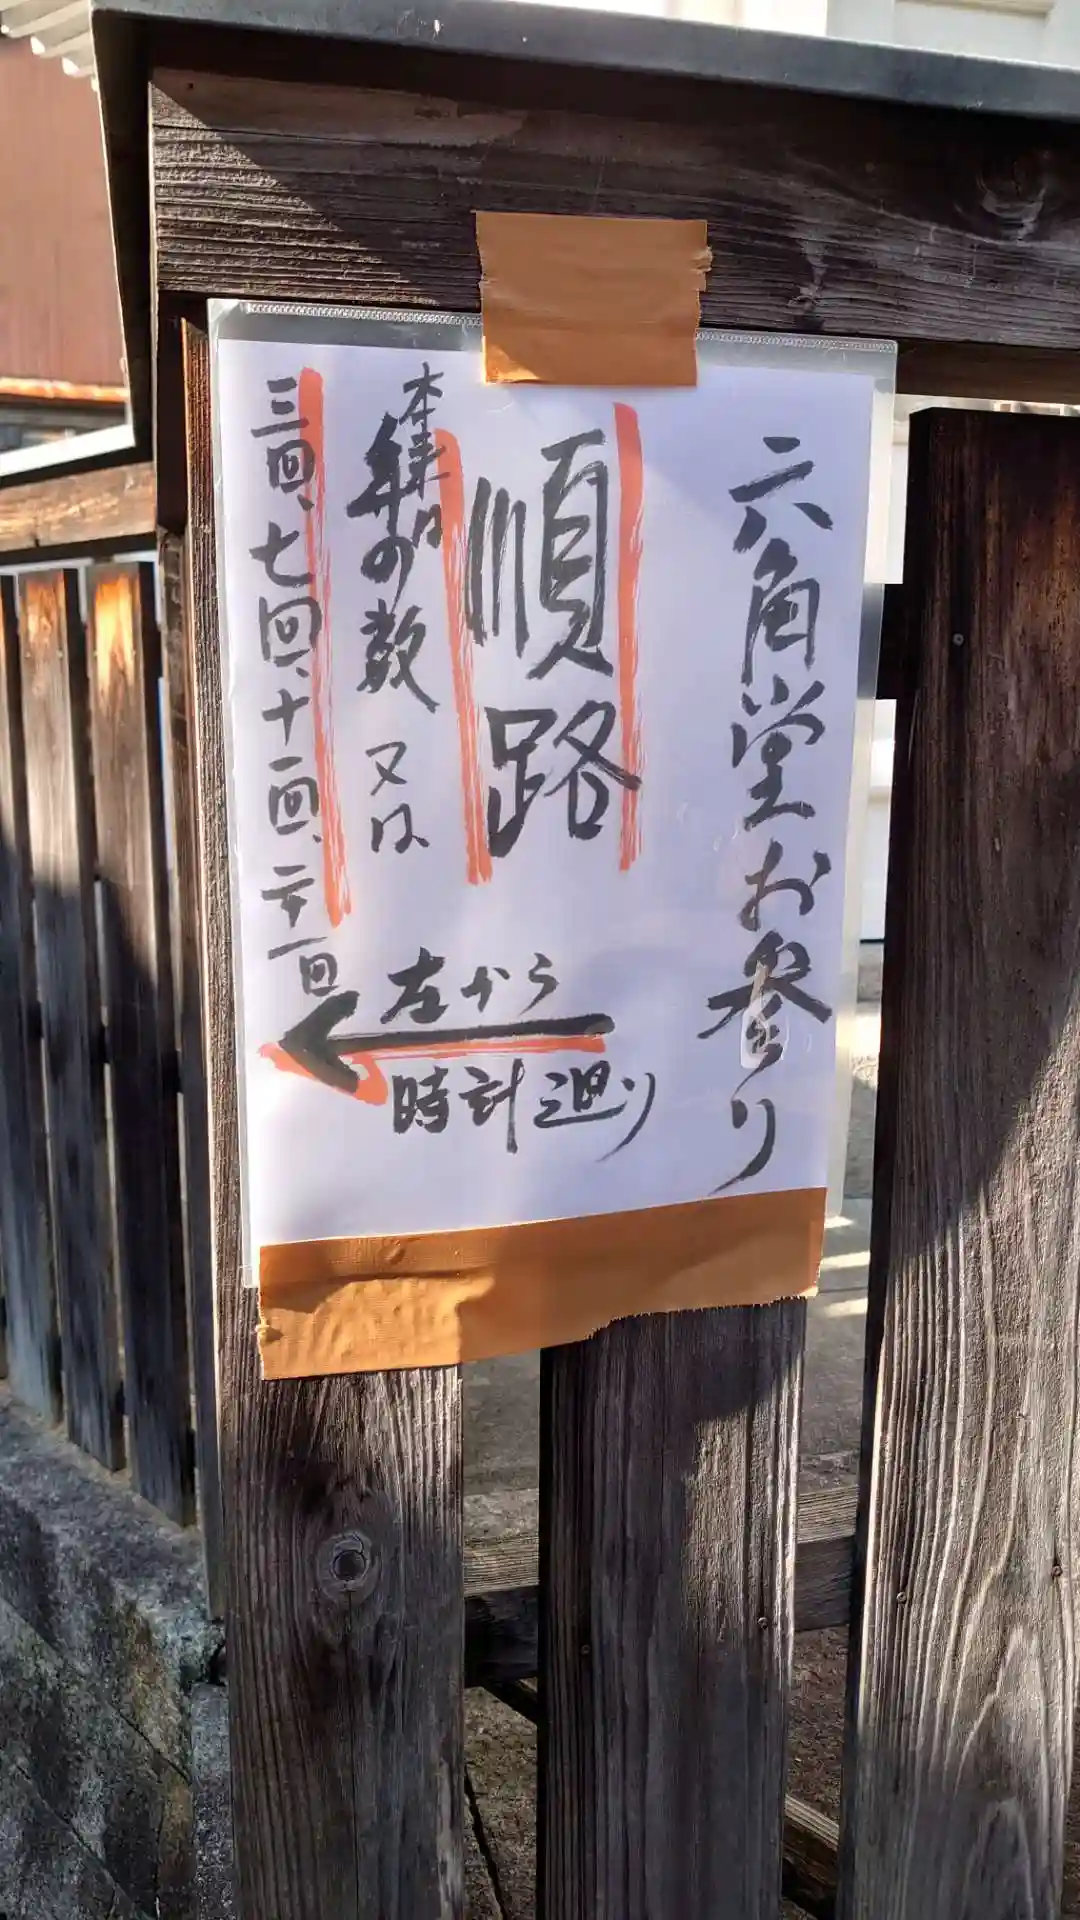 六角堂お参り
順路
本来は
年の数又は
三回、七回、十一回、二十一回
左から
時計廻り